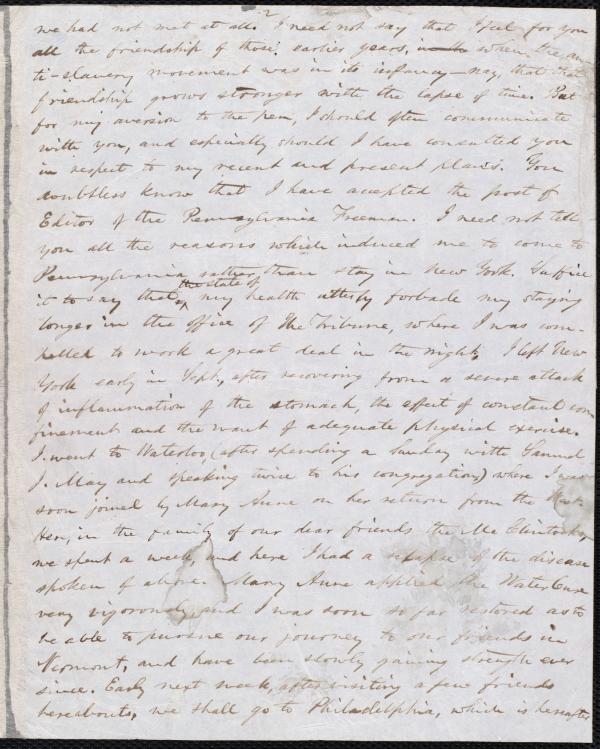 2
we had not met at all. I need not say that I feel for you
all the friendship of those earlier years, when the an-
ti-slavery movement was in its infancy—nay, that that
friendship grows stronger with the lapse of time. But
for my aversion to the pen, I should often communicate
with you, and especially should I have consulted you
in respect to my recent and present plans. You
doubtless know that I have accepted the post of
Editor of the Pennsylvania Freeman. I need not tell
you all the reasons which induced me to come to
Pennsylvania rather than stay in New York. Suffice
it to say that the state of my health utterly forbade my staying
longer in the office of The Tribune, where I was com-
pelled to work a great deal in the night. I left New
York early in Sept., after recovering from a severe attack
of inflammation of the stomach, the effect of constant con
finement and the want of adequate physical exercise.
I went to Waterloo, (after spending a Sunday with Samuel
J. May and speaking twice to his congregation) where I was
soon joined by Mary Anne on her return from the West.
Here, in the family of our dear friends the Mc Clintocks,
we spent a week, and here I had a relapse of the disease
spoken of above. Mary Anne applied the Water Cure
very vigorously and I was soon so far restored as to
be able to pursue our journey to our friends in
Vermont, and have been slowly gaining strength ever
since. Early next week, after visiting a few friends
hereabouts, we shall go to Philadelphia, which is hereafter